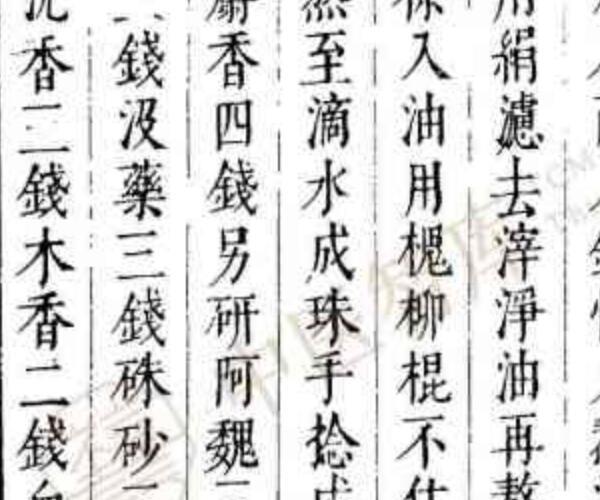 用絹濾去滓淨油再熬
入油用槐柳棍不住
至滴水成珠手捻成
麝香四錢另研阿魏
錢沒藥三錢硃砂
沉香二錢木香二錢